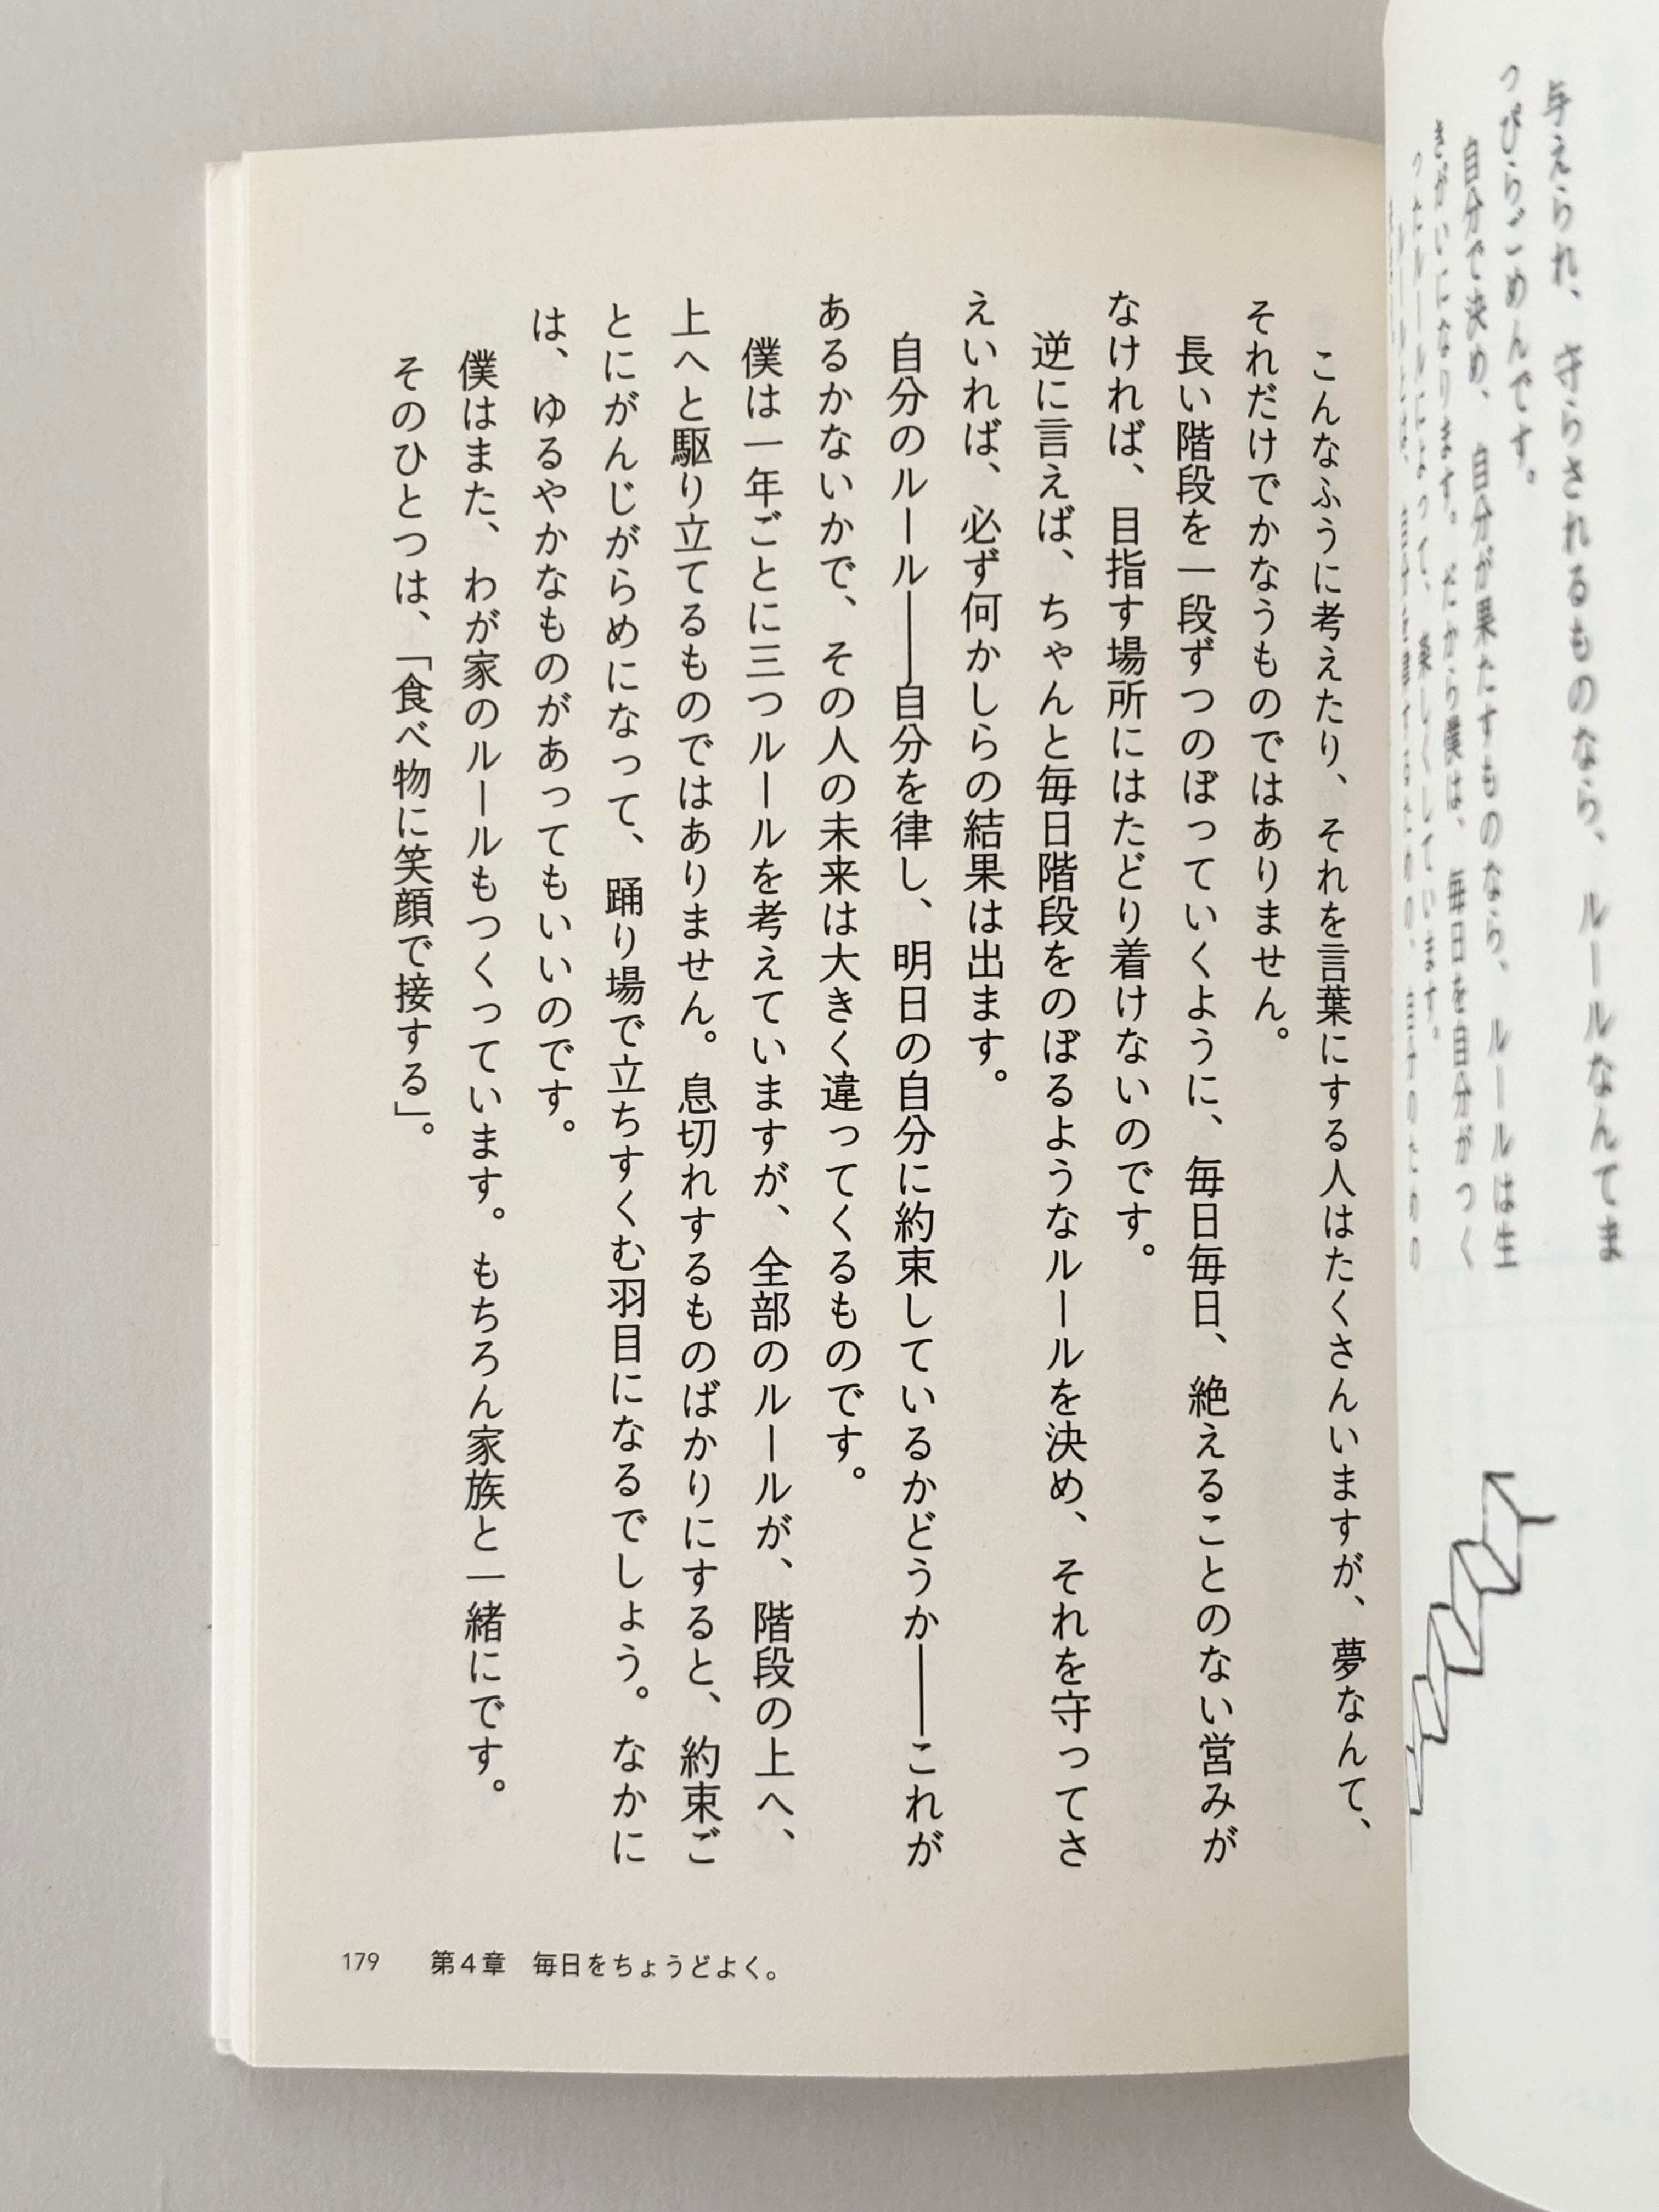 与えられ、守らされるものなら、ルールなんてま
っぴらごめんです。
自分で決め、自分が果たすものなら、ルールは生
きがいになります。だから僕は、毎日を自分がつく
ったルールによって、楽しくしています。
こんなふうに考えたり、それを言葉にする人はたくさんいますが、夢なんて、
それだけでかなうものではありません。
長い階段を一段ずつのぼっていくように、毎日毎日、絶えることのない営みが
なければ、目指す場所にはたどり着けないのです。
逆に言えば、ちゃんと毎日階段をのぼるようなルールを決め、それを守ってさ
えいれば、必ず何かしらの結果は出ます。
自分のルール――自分を律し、明日の自分に約束しているかどうか――これが
あるかないかで、その人の未来は大きく違ってくるものです。
僕は一年ごとに三つルールを考えていますが、全部のルールが、階段の上へ、
上へと駆り立てるものではありません。息切れするものばかりにすると、約束ご
とにがんじがらめになって、踊り場で立ちすくむ羽目になるでしょう。なかに
は、ゆるやかなものがあってもいいのです。
僕はまた、わが家のルールもつくっています。もちろん家族と一緒にです。
そのひとつは、「食べ物に笑顔で接する」。
179 第4章 毎日をちょうどよく。